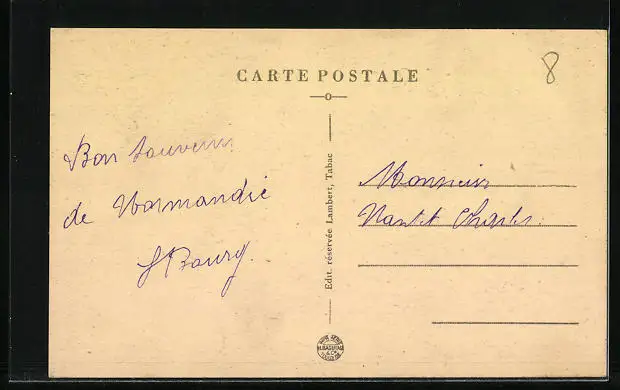 8
CARTE POSTALE
Bon Souvenir
de Normandie
Edit. réservée Lambert, Tabac
Monsieur
Charles